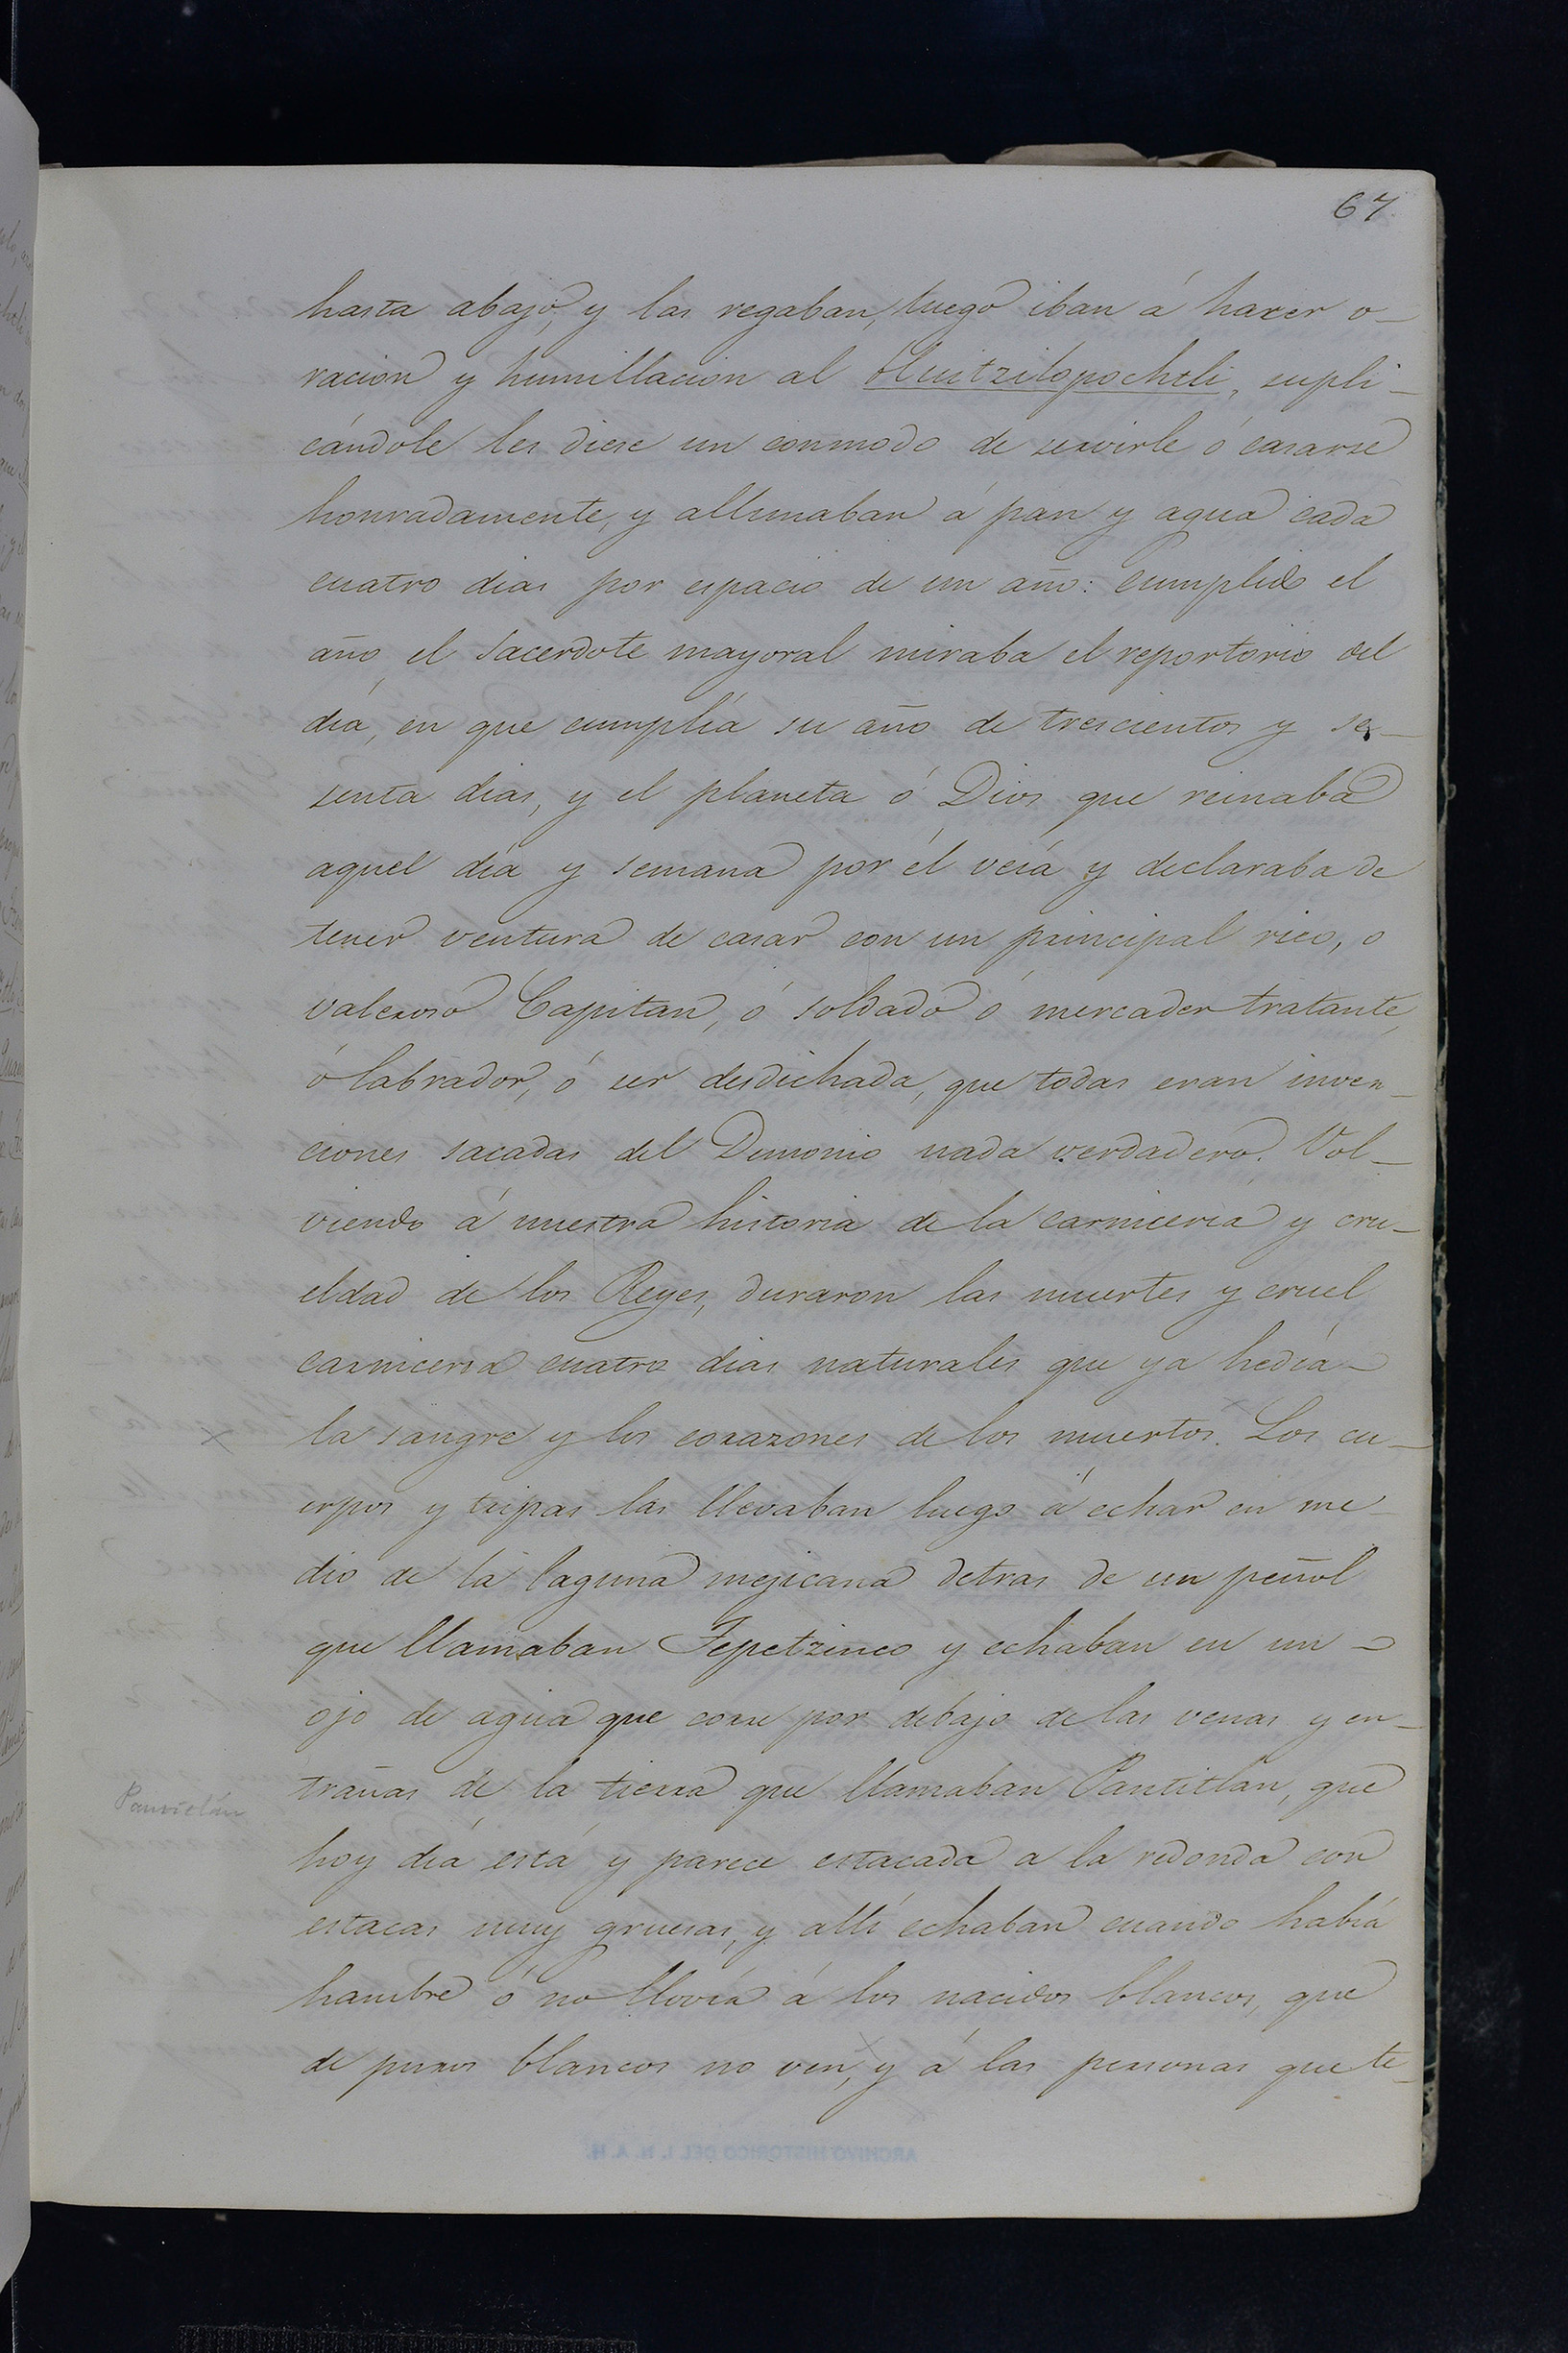 67.
hasta abajo, y las regaban, luego iban á hazer o-
racion y humillacion al Huitzilopochtli, supli-
cándole les diese un conmodo de servirle ó casarse
honradamente, y allunaban á pan y agua cada
cuatro dias por espacio de un año: cumplido el
año, el Sacerdote mayoral miraba el reportorio del
día, en que cumplía su año de trescientos y se-
senta dias, y el planeta ó Dios que reinaba
aquel día y semana por él veía y declaraba de
tener ventura de casar con un principal rico, o
valeroso Capitan, ó soldado ó mercader tratante,
ó labrador, ó ser desdichada, que todas eran inven-
ciones sacadas del Demonio nada verdadero. Vol-
viendo á nuestra historia de la carniceria y cru-
eldad de los Reyes, duraron las muertes y cruel
carniceria cuatro dias naturales que ya hedía
la sangre y los corazones de los muertos. Los cu-
erpos y tripas las llevaban luego á echar en me-
dio de la laguna mejicana detras de un peñol
que llamaban Tepetzinco y echaban en un
ojo de agua que corre por debajo de las venas y en-
trañas de la tierra que llamaban Pantitlan, que
Pantitlán
hoy día está y parece estacada a la redonda con
estacas muy gruesas, y allí echaban cuando había
hambre ó no llovía á los nacidos blancos, que
de puros blancos no ven, y á las personas que te-
ARCHIVO HISTORICO DEL I. N. A. H.